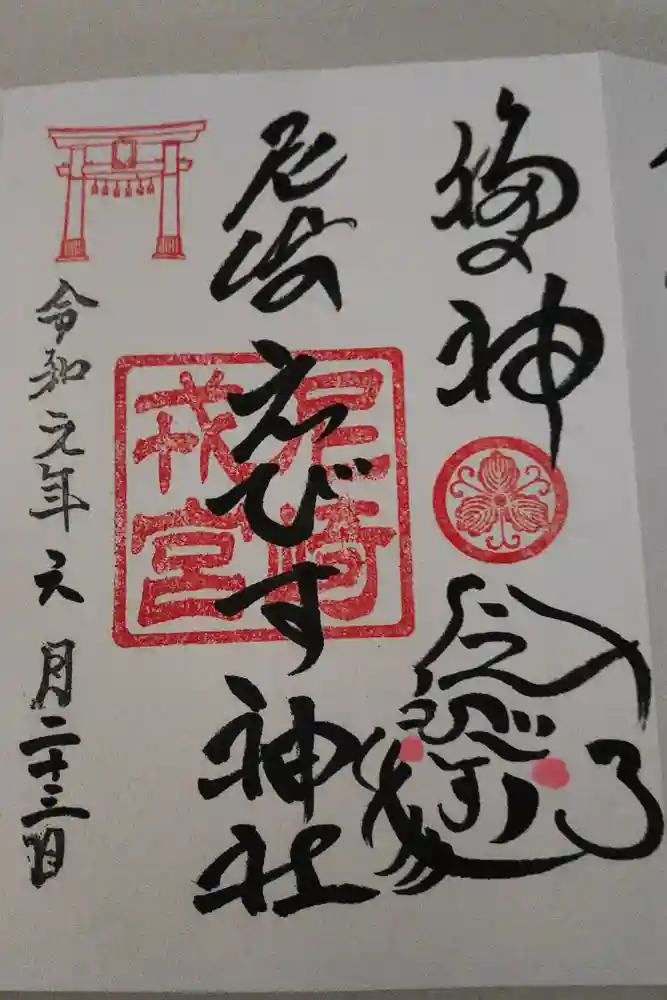 福神
えびす
尼崎えびす神社
尼崎
戎宮
令和元年六月二十三日